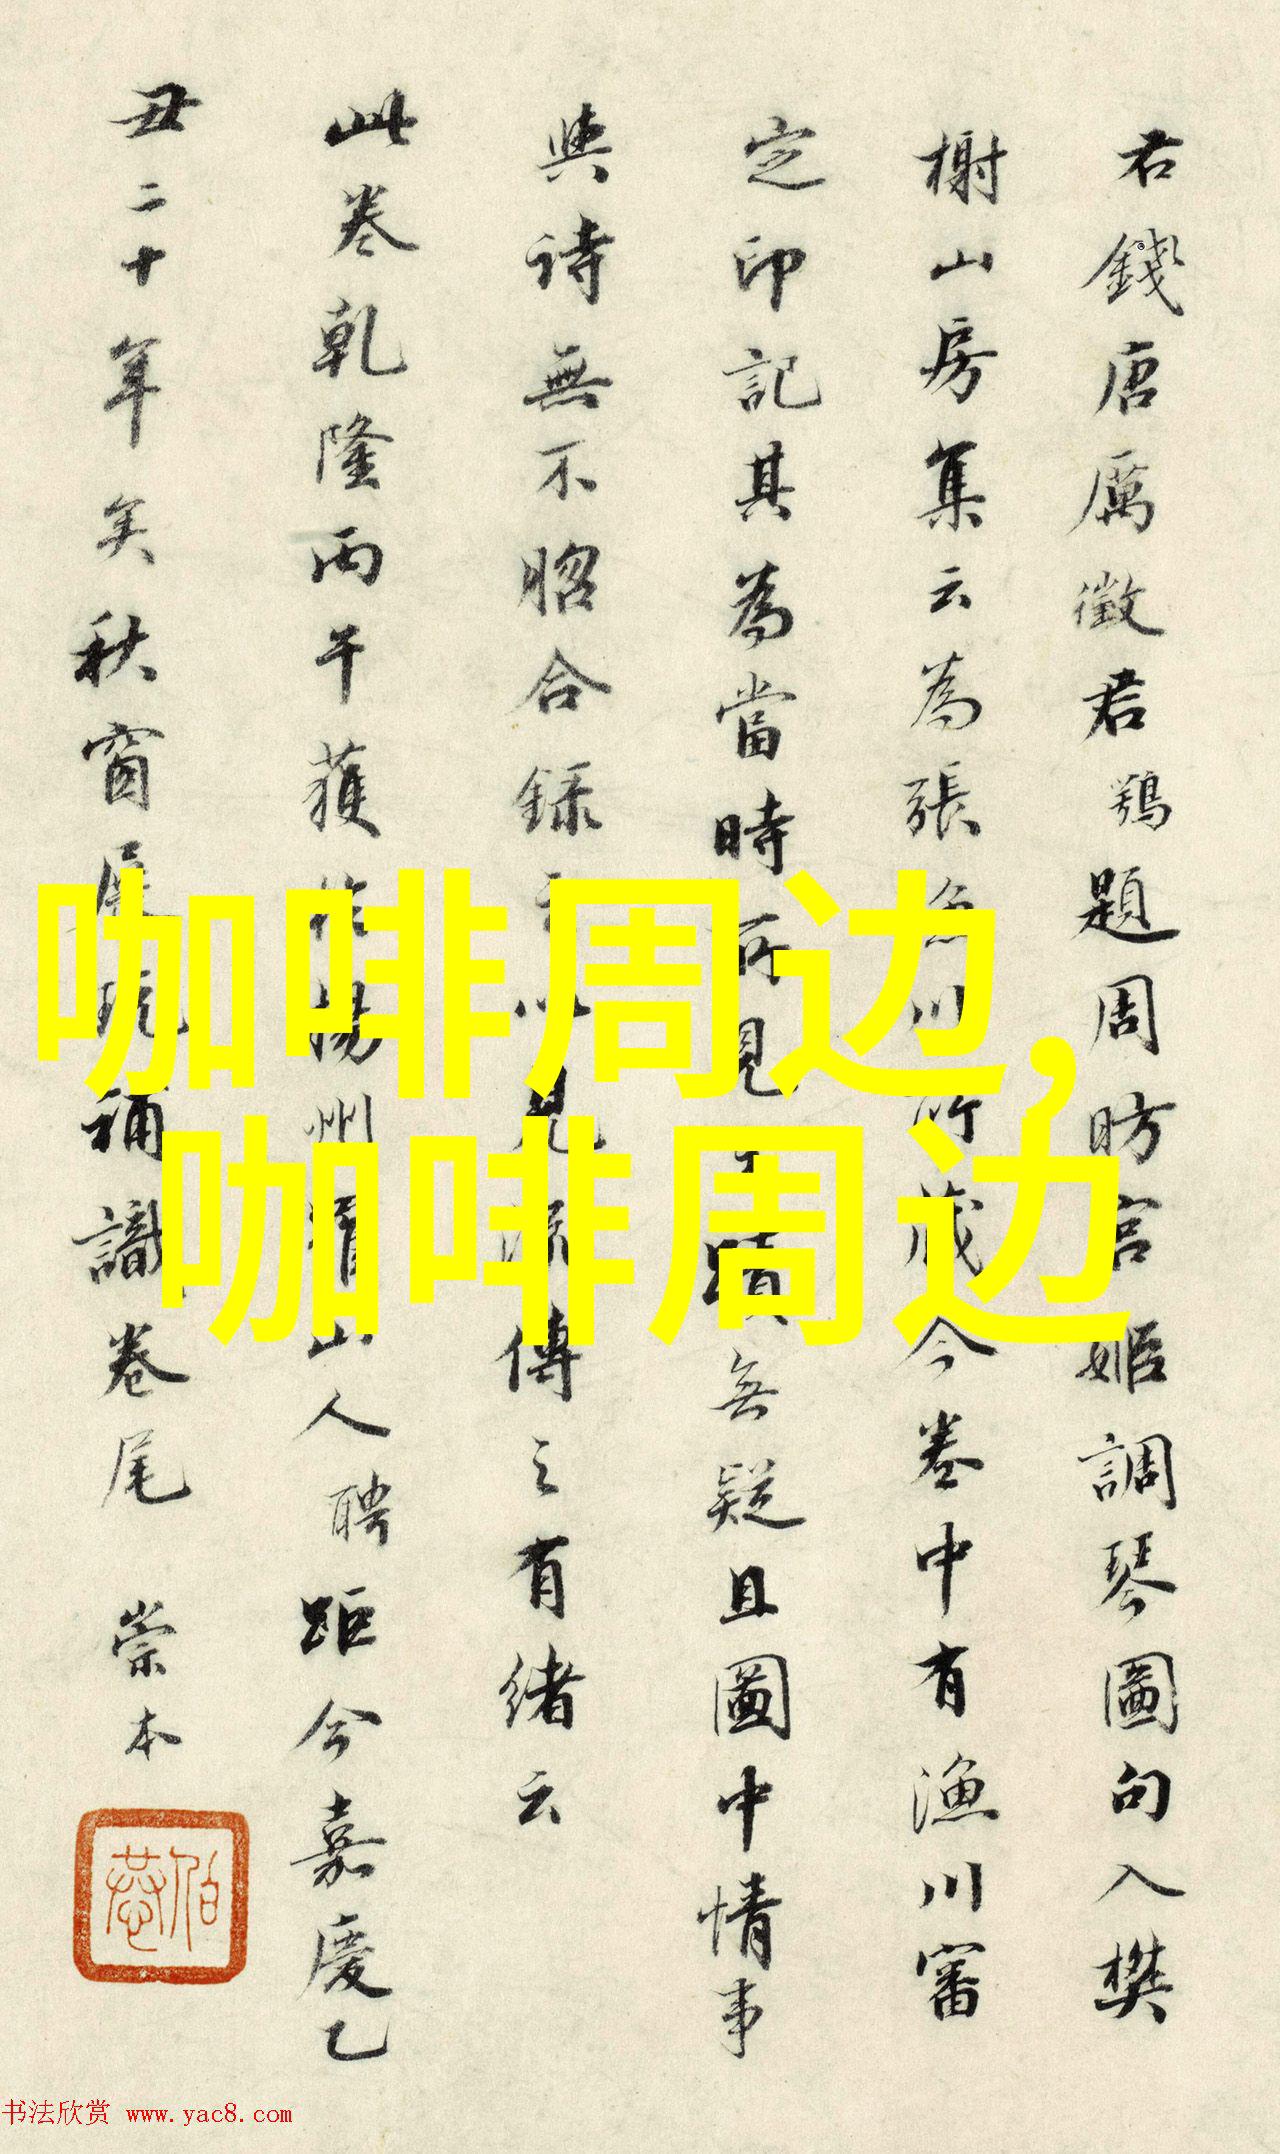 君錢唐厲徵君鶚題周昉宮姬調琴圖句入樊
榭山房集云為張漁川所藏今卷中有漁川審
定印記其為當時所見真蹟無疑且圖中情事
與詩無不昭合錄之以見流傳之有緒云
此卷乾隆丙午獲於揚州 山人聘距今嘉慶乙
丑二十年矣秋窗展玩補識卷尾 崇本
咖啡周边,
咖啡周边
书法欣赏 www.yac8.com